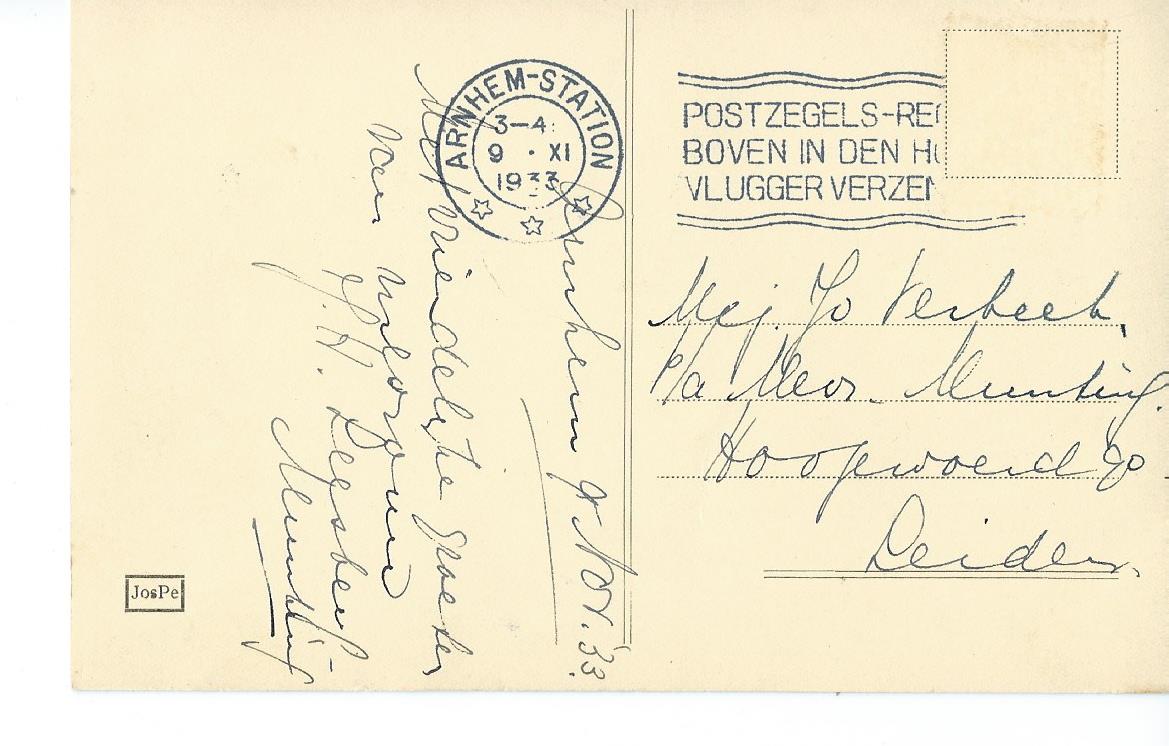 ARNHEM-STATION
3-4
9 · XI
1933
POSTZEGELS-RE
BOVEN IN DEN H
VLUGGER VERZEN
Arnhem 9 Nov. '33.
Met vriendelijke groeten
van
J. H.
Munting
Mej. Jo Verbeek,
p/a Mevr. Munting.
Hoogewoerd
Leiden.
JosPe